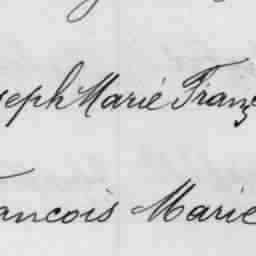 seph Marie Franç
ancois Marie